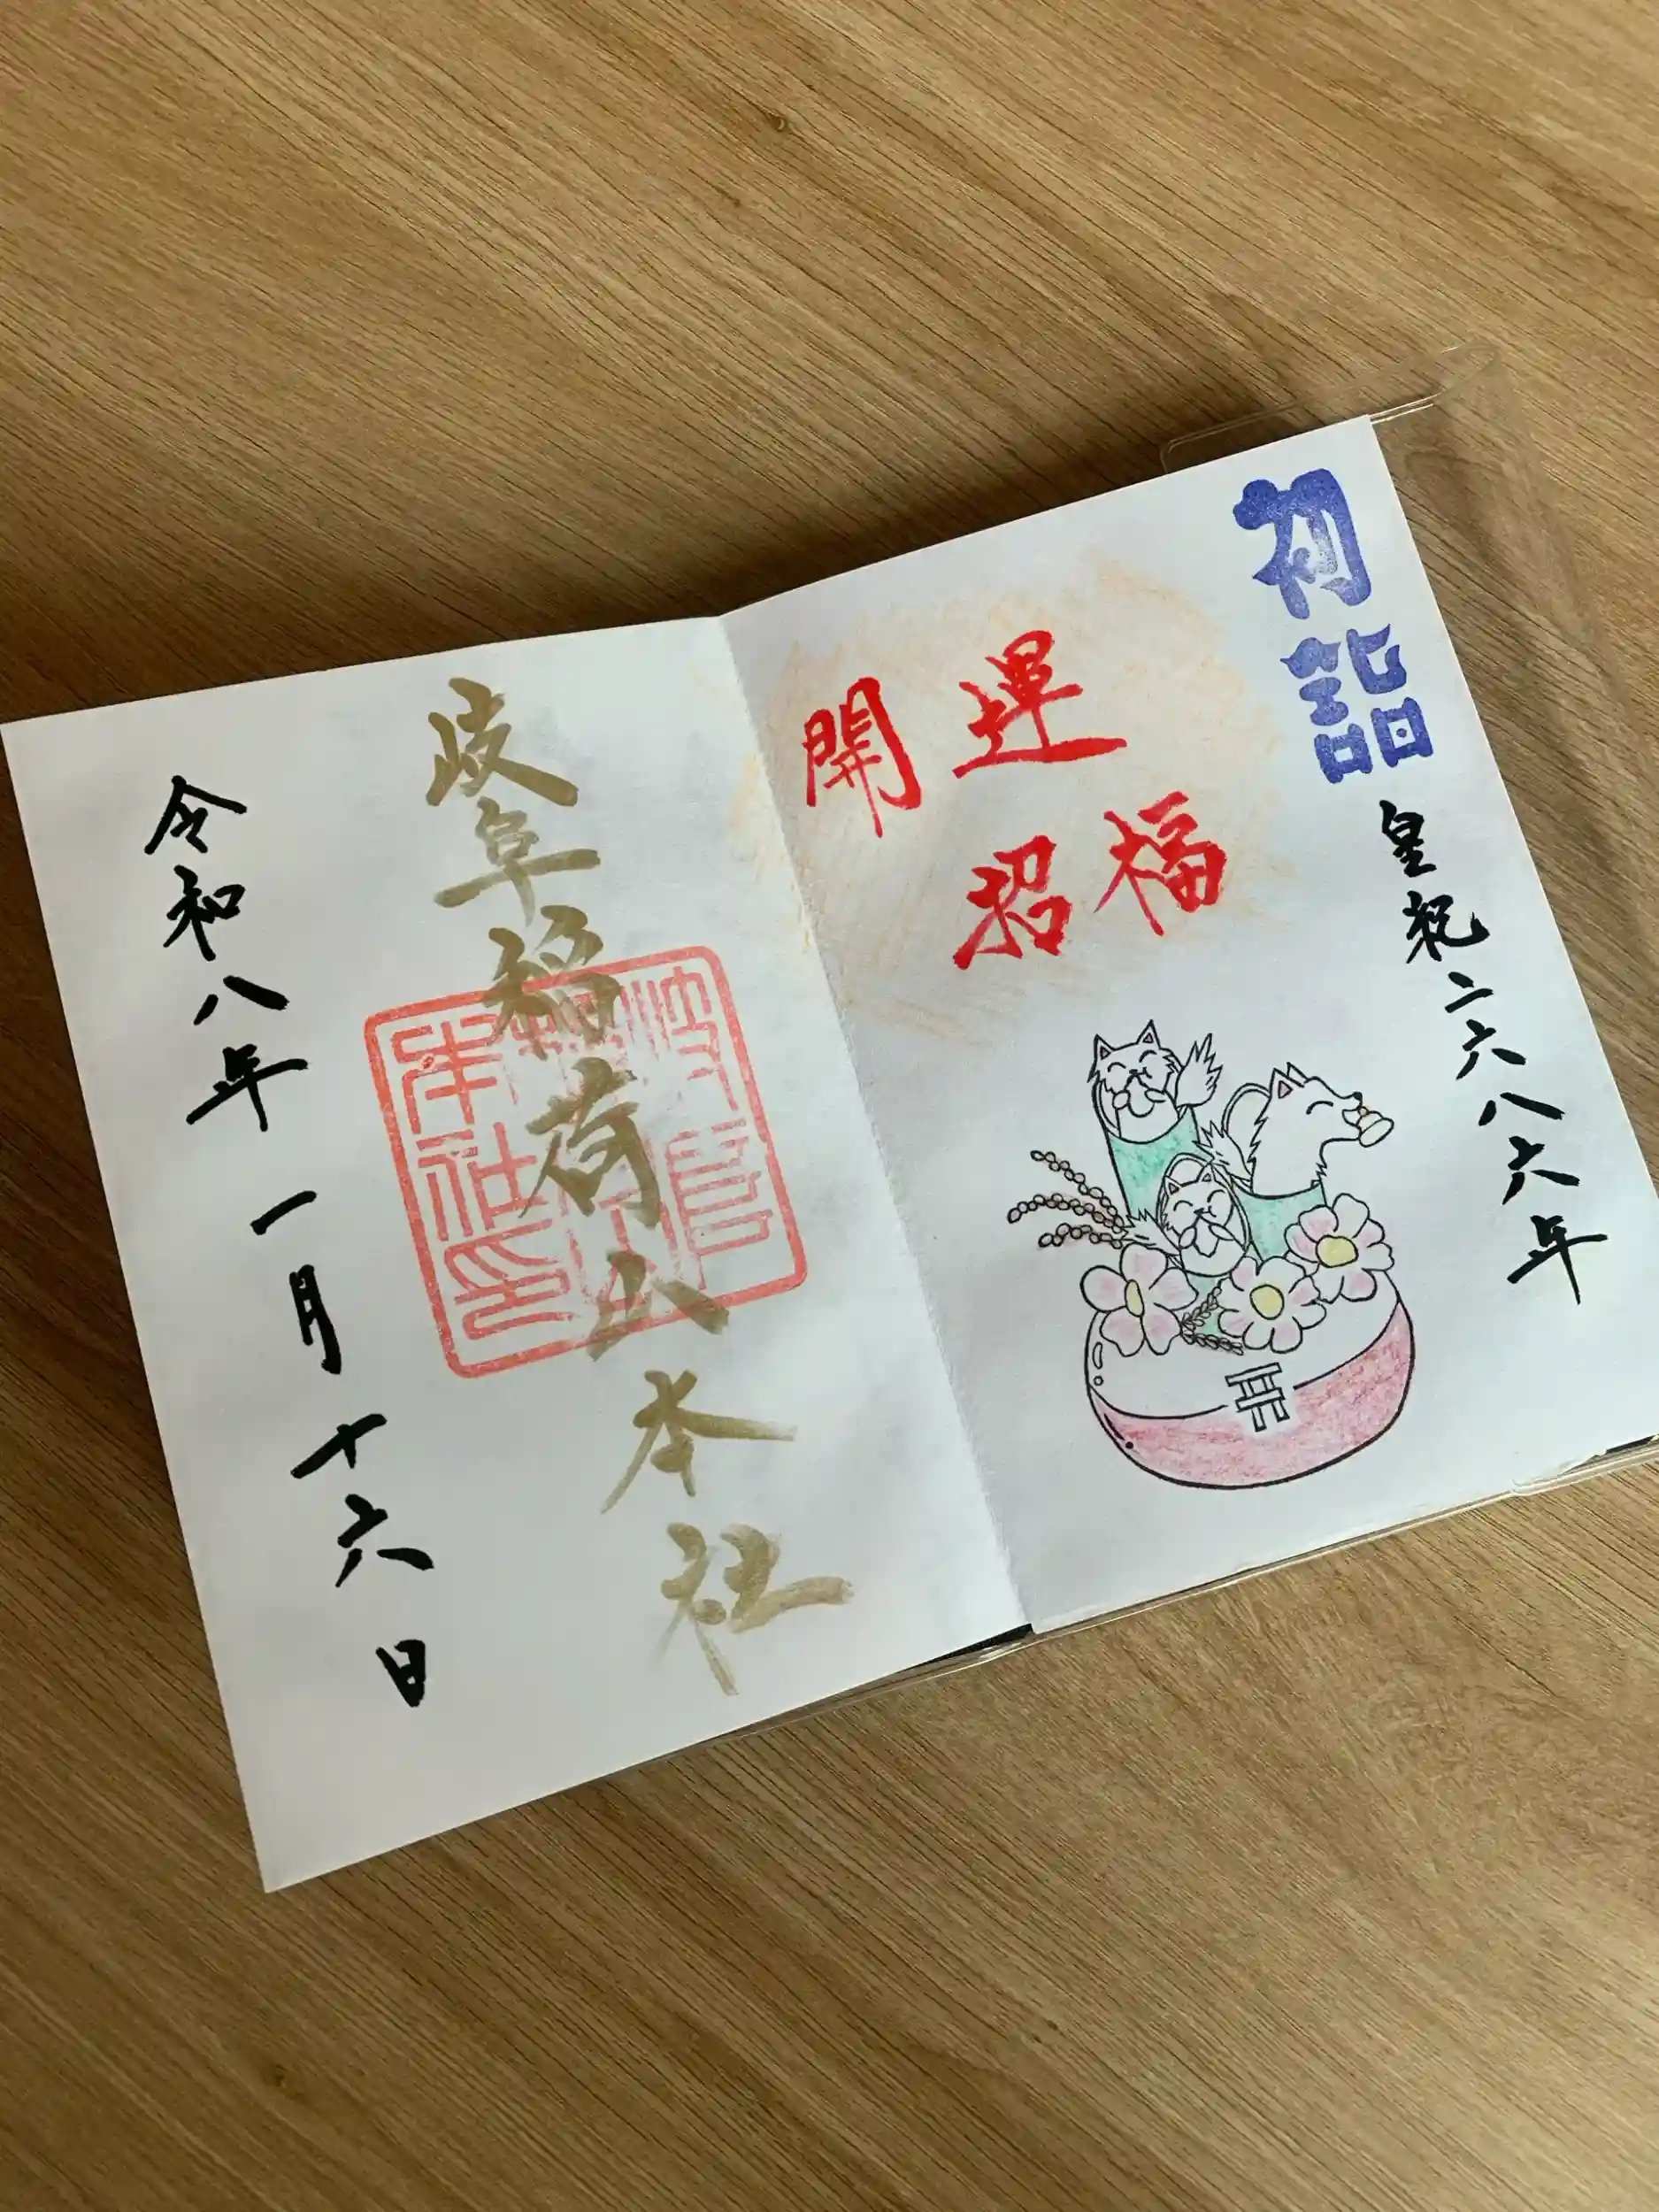 初詣
皇紀二六八六年
開運
招福
岐阜稲荷山本社
岐阜
本社印
令和八年一月十六日